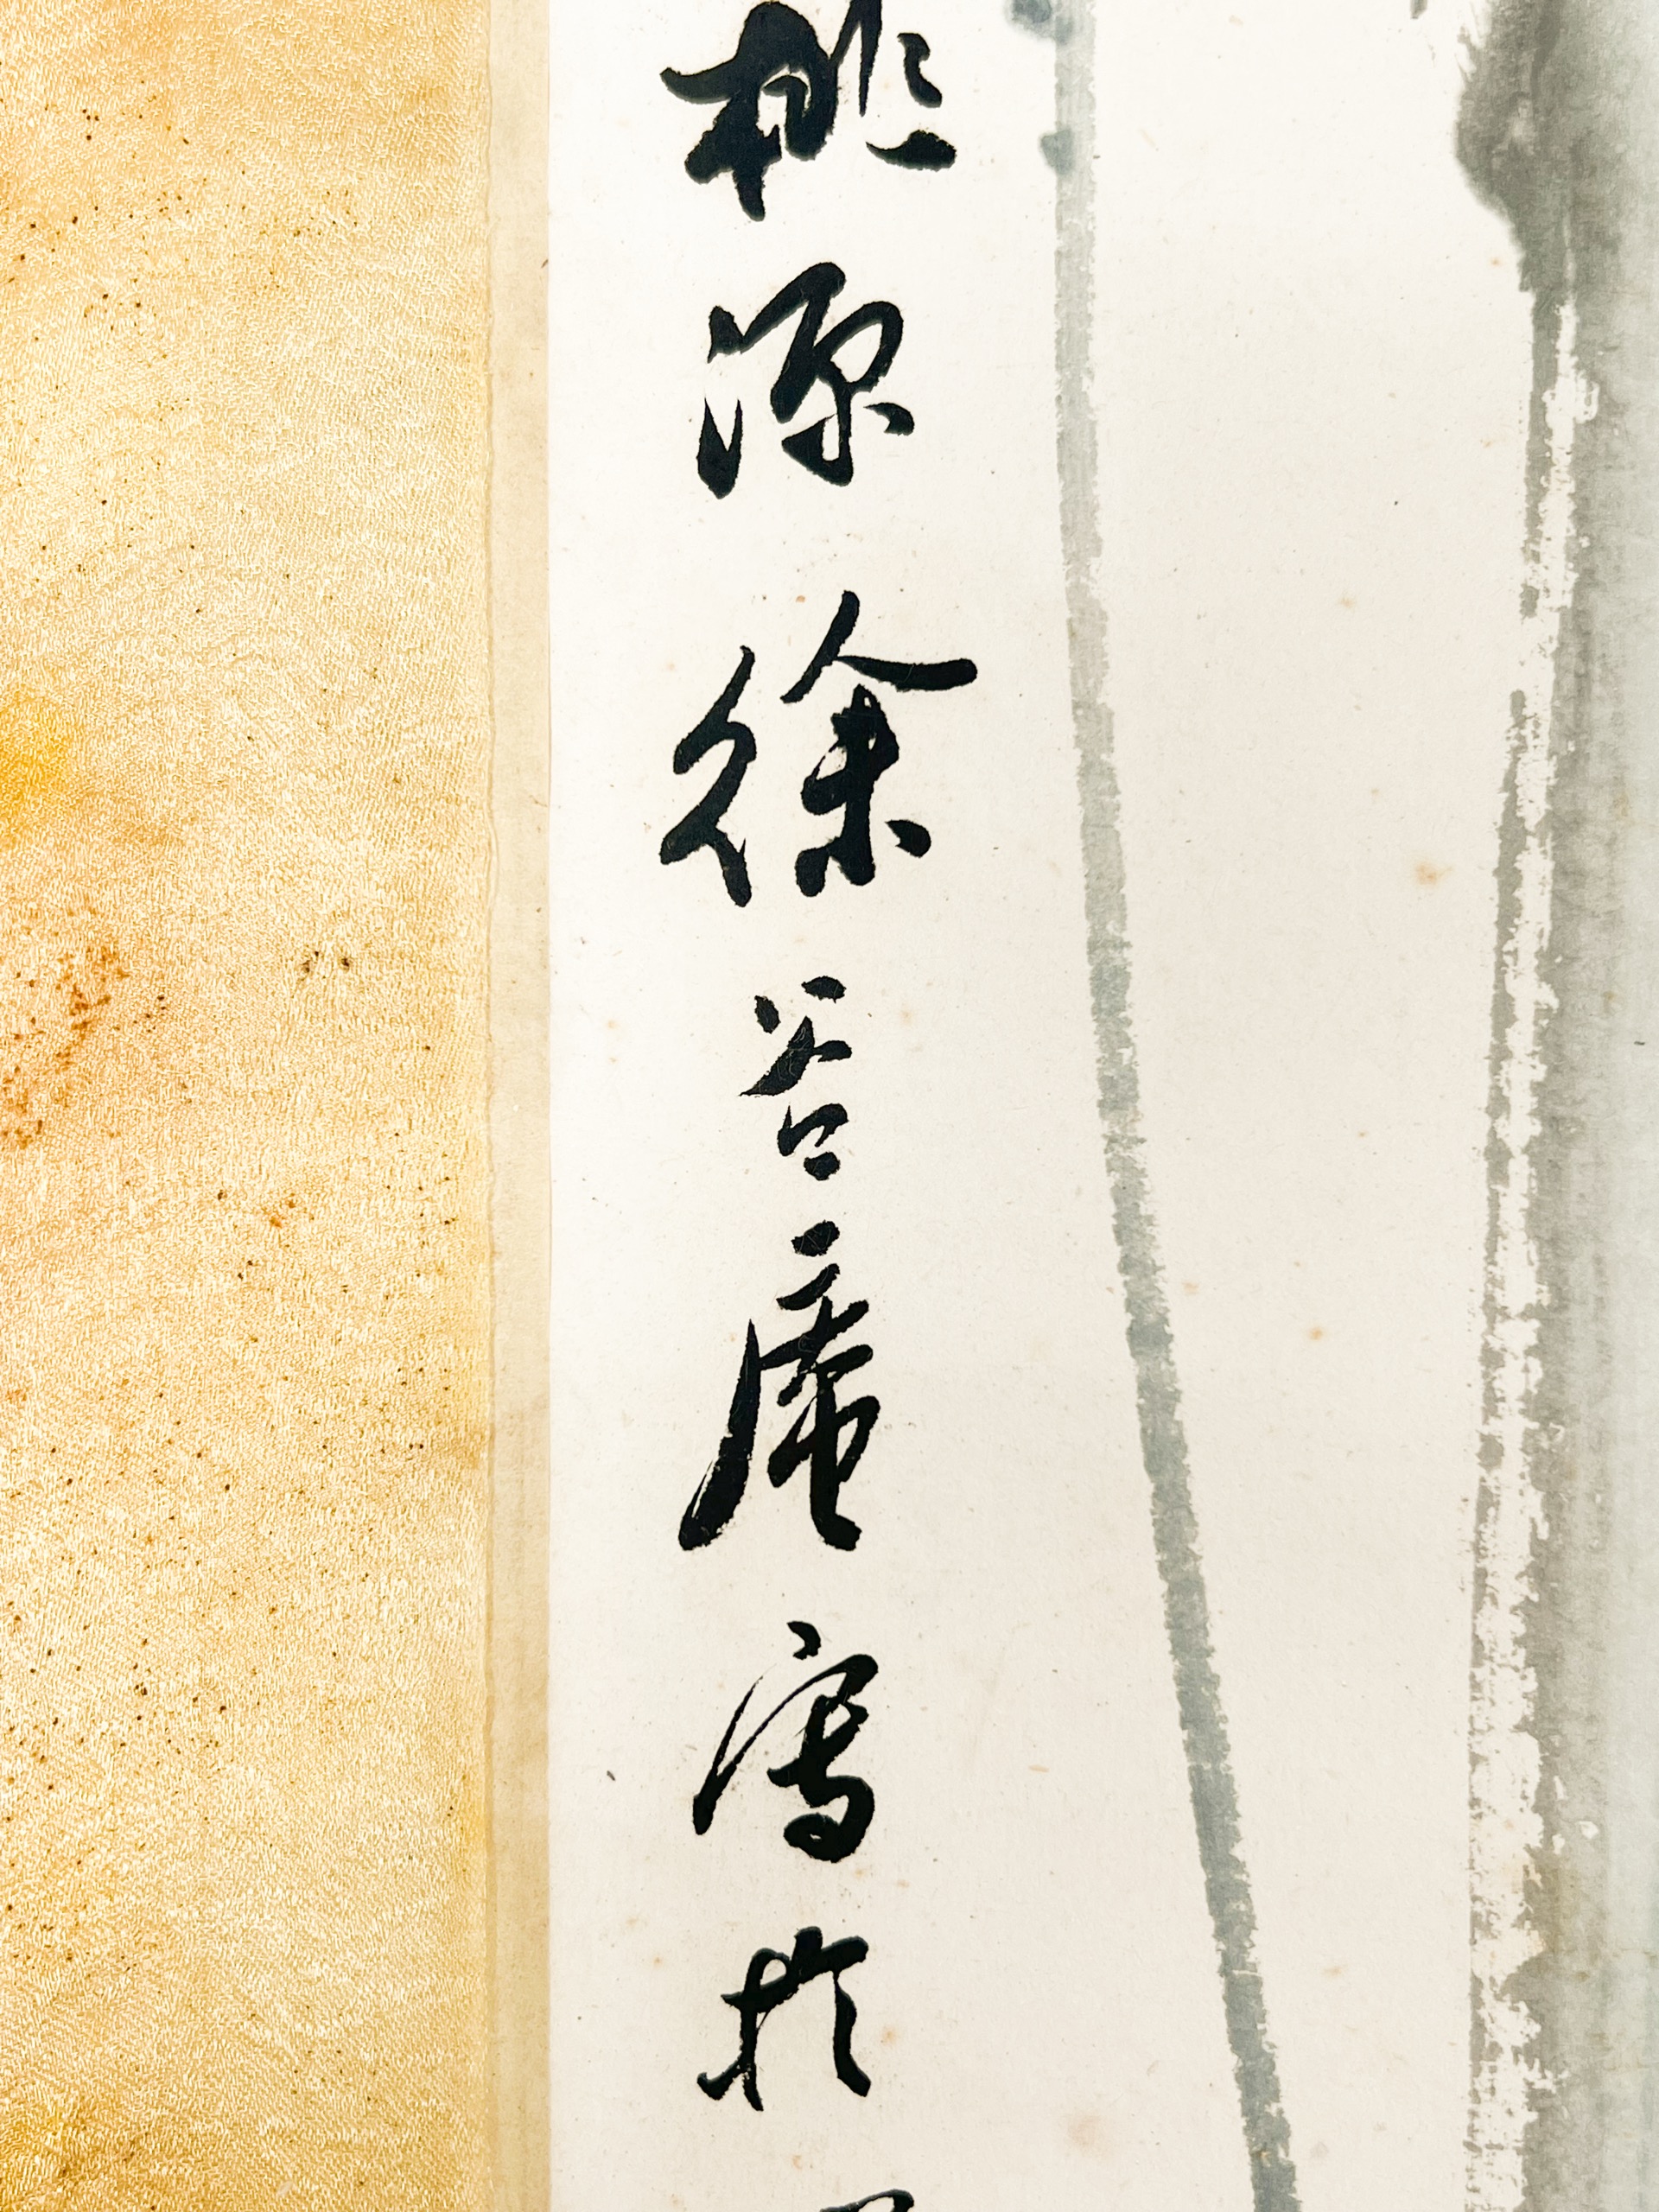 桃源徐谷庵寫於